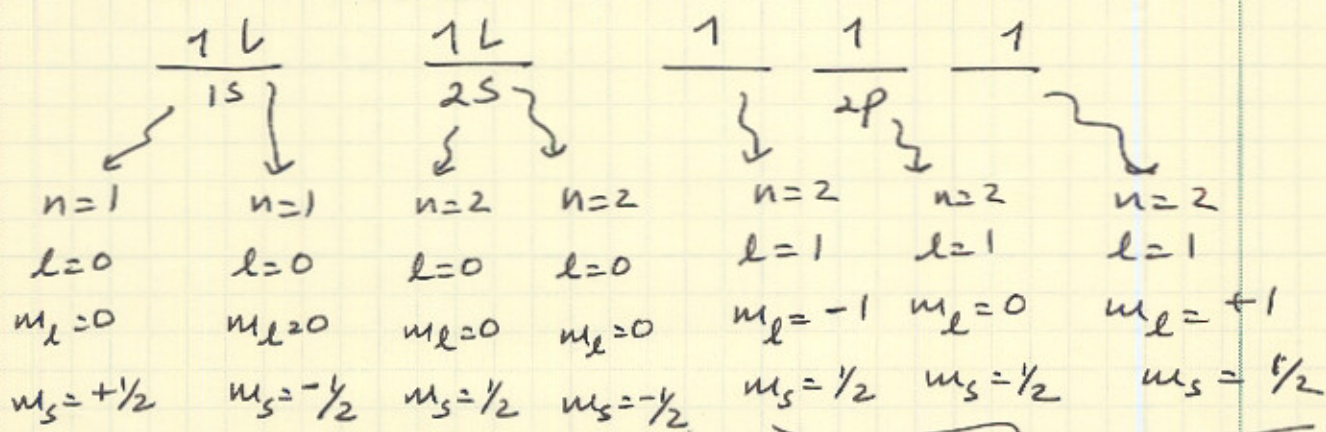 1 L 1 L 1 1 1
1s 2s 2p
n=1 n=1 n=2 n=2 n=2 n=2 n=2
l=0 l=0 l=0 l=0 l=1 l=1 l=1
mℓ=0 mℓ=0 mℓ=0 mℓ=0 mℓ=-1 mℓ=0 mℓ=+1
ms=+1/2 ms=-1/2 ms=1/2 ms=-1/2 ms=1/2 ms=1/2 ms=1/2